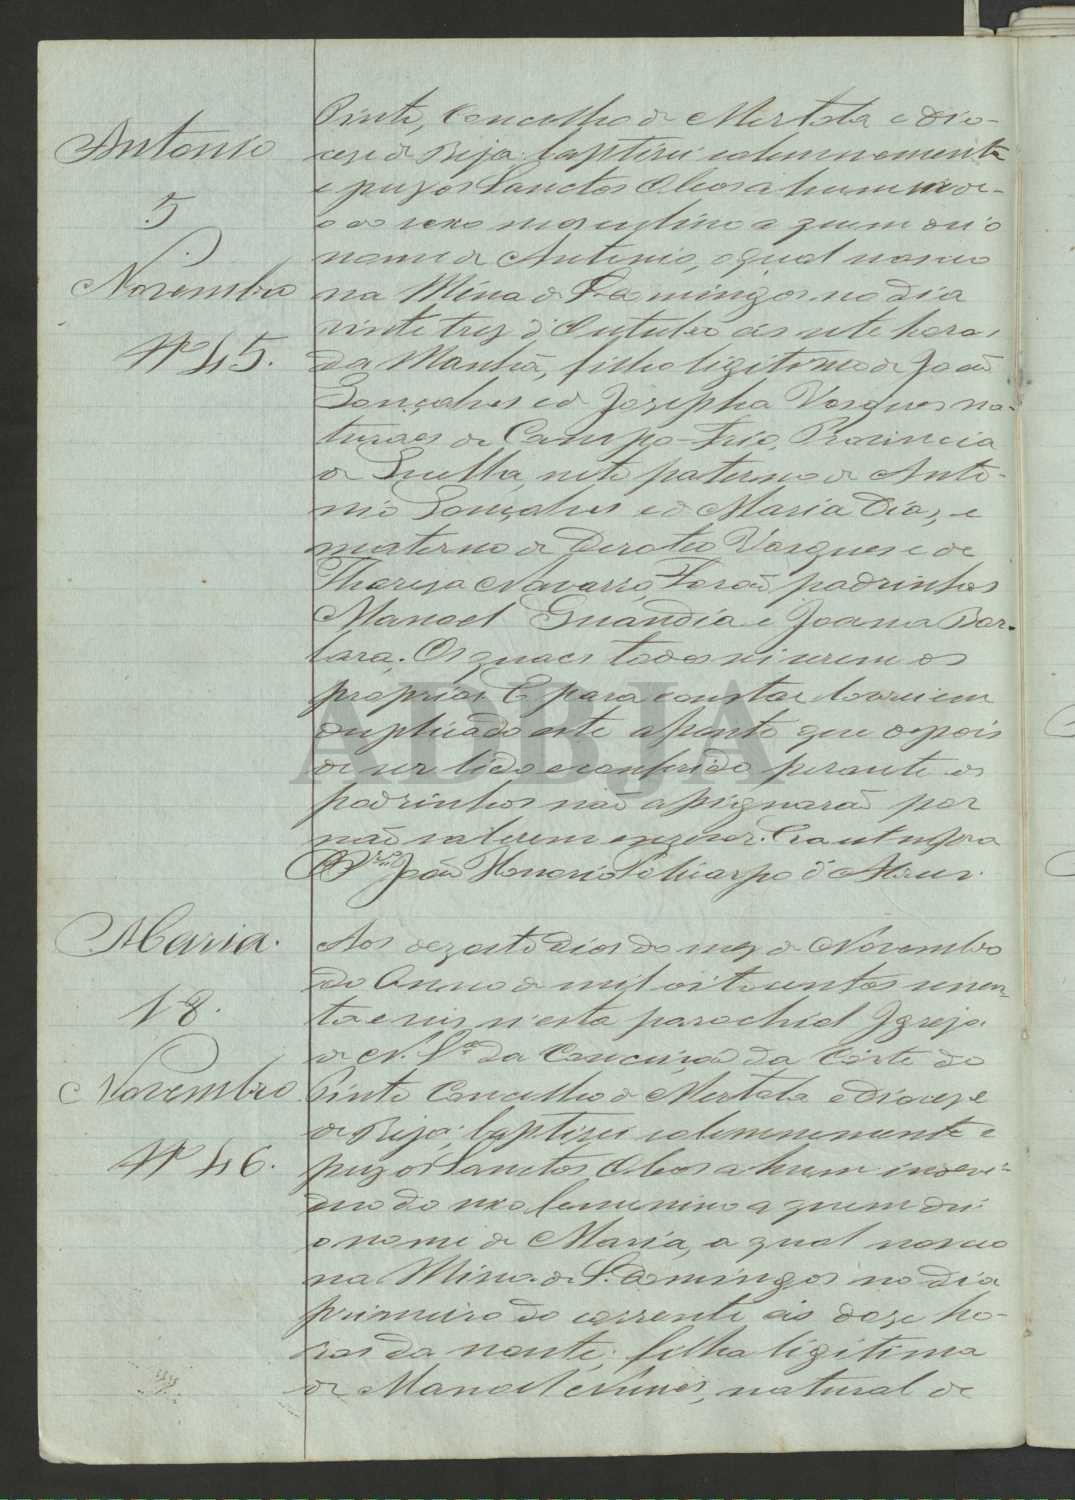 Antonio
5
Novembro
Nº 45.
Pinto, Concelho de Mertola e Dio-
cese de Beja: baptisei solemnemente
e puz os Sanctos Oleos a hum indevi-
o do sexo masculino a quem dei o
nome de Antonio, o qual nasceu
na Mina de S. Domingos no dia
vinte trez d'Outubro ás sete horas
da Manhã, filho legitimo de João
Gonçalves e de Josepha Vasques na-
turaes de Campo-Frio, Provincia
de Huelba, neto paterno de Anto-
nio Gonçalves e de Maria Dias, e
materno de Vasques e de
Thereza Navarro, Forão padrinhos
Manoel Guandia e Joana Bar-
bara. Os quaes todos sei serem os
proprios. E para constar lavrei em
duplicado este assento que depois
de ser lido e conferido perante os
padrinhos não assignarão por
não saberem escrever. Era ut supra
O João Honorio d'Abreu.
Maria.
18.
Novembro
Nº 46.
Aos dezoito dias do mez de Novembro
do Anno de mil oitocentos seten-
ta e seis n'esta parochial Igreja
de N. Srª da Conceição da Córte do
Pinto Concelho de Mertola e Diocese
de Beja: baptisei solemnemente e
puz os Sanctos Oleos a hum indevi-
duo do sexo femenino a quem dei
o nome de Maria, a qual nasceo
na Mina de S. Domingos no dia
primeiro do corrente ás doze ho-
ras da noute; filha legitima
de Manoel Nunes, natural de
ADBJA